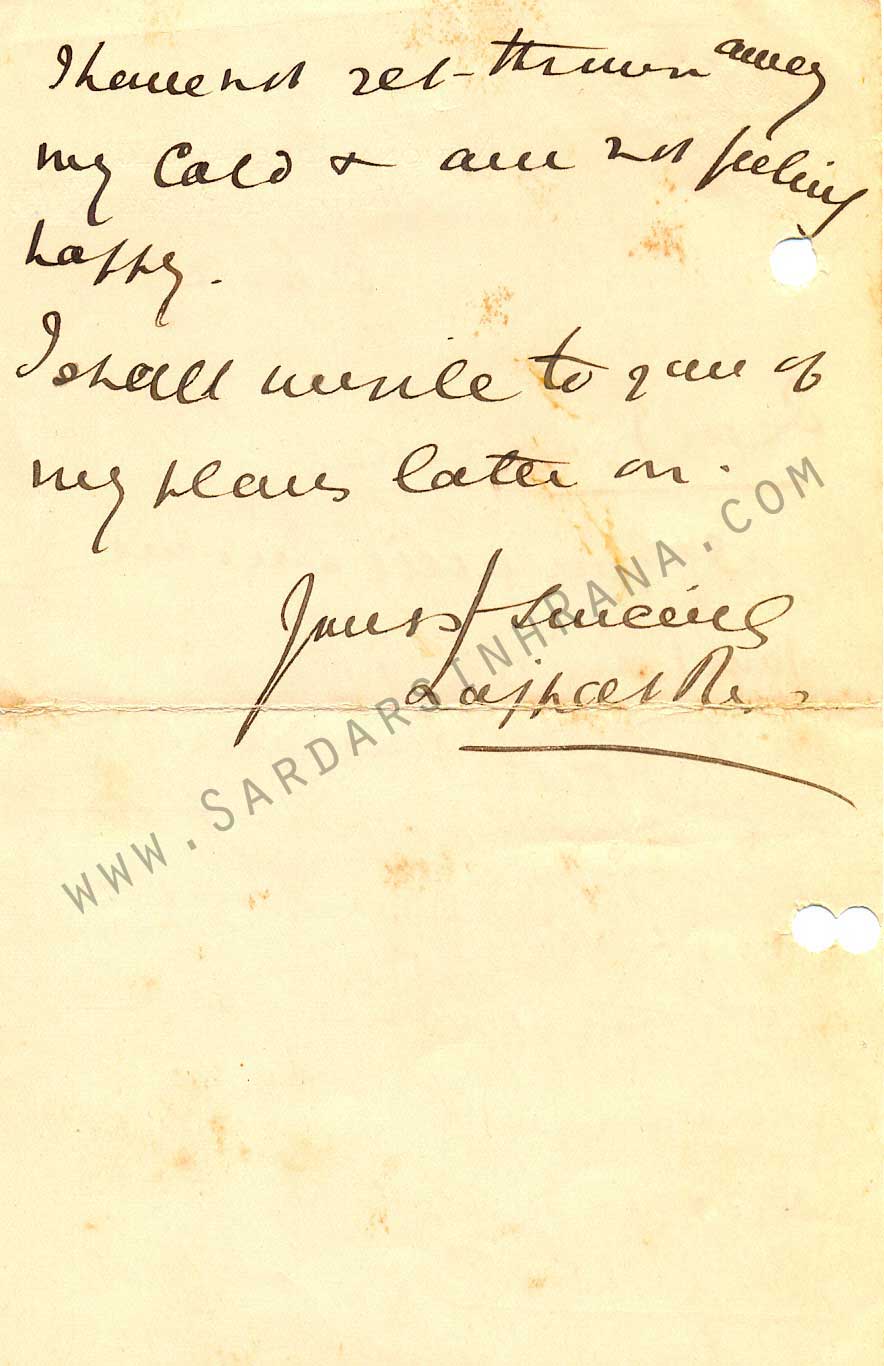 I have not yet thrown away
my Cold & am not feeling
happy.
I shall write to you of
my plans later on.
Yours Sincerely
Lajpat Rai
WWW.SARDARSINHRANA.COM